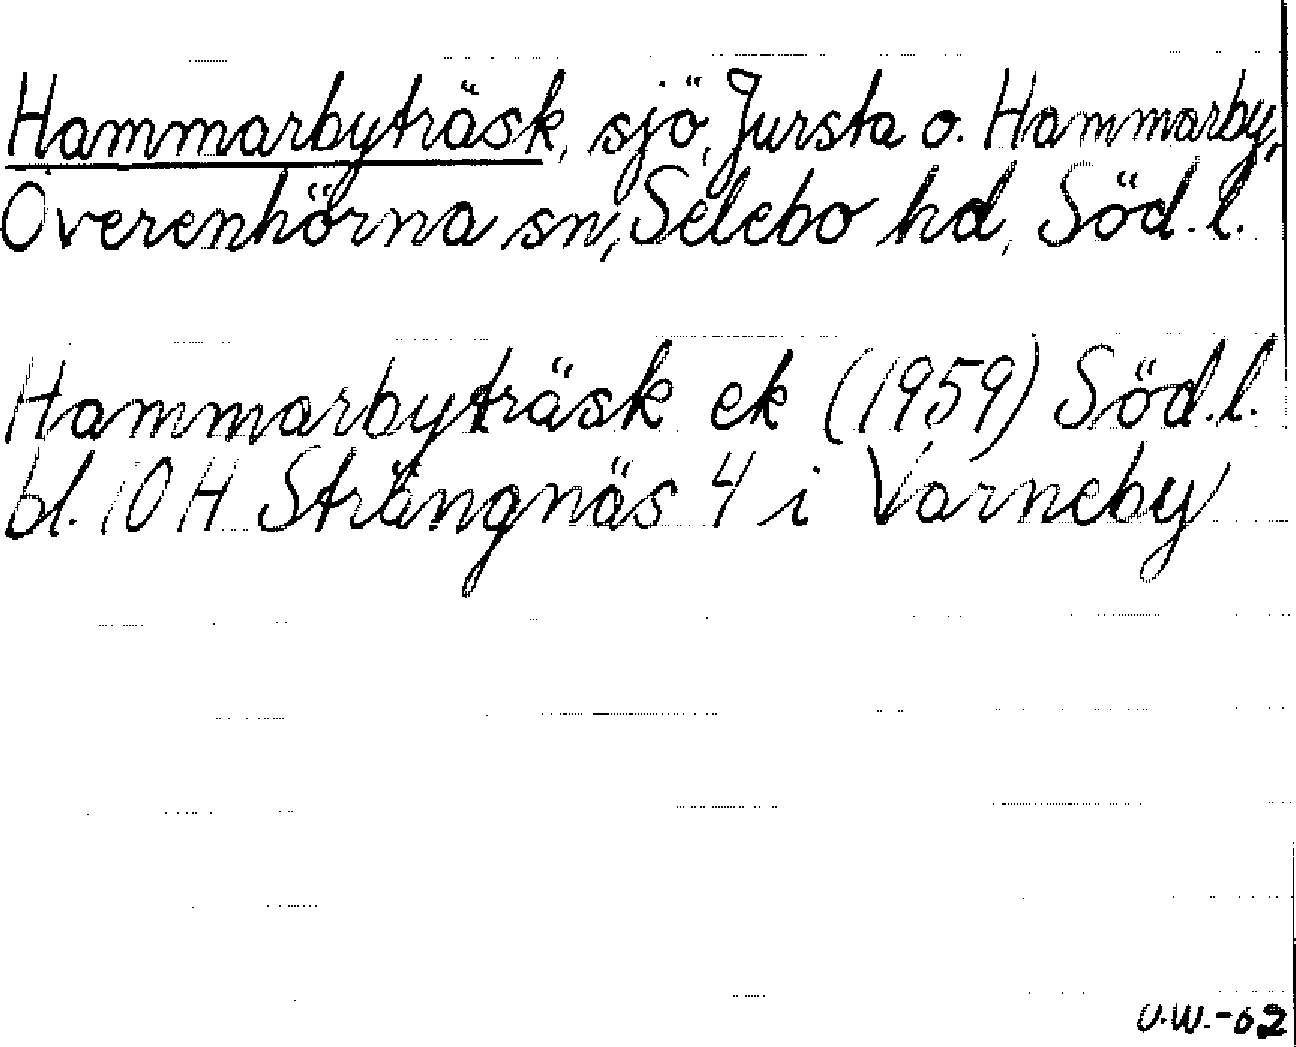 Hammarbyträsk, sjö, Jursta o. Hammarby,
Överenhörna sn, Selebo hd, Söd.l.
Hammarbyträsk ek (1959) Söd.l.
bl. 10 H Strängnäs 4 i Varneby
U.W.-02